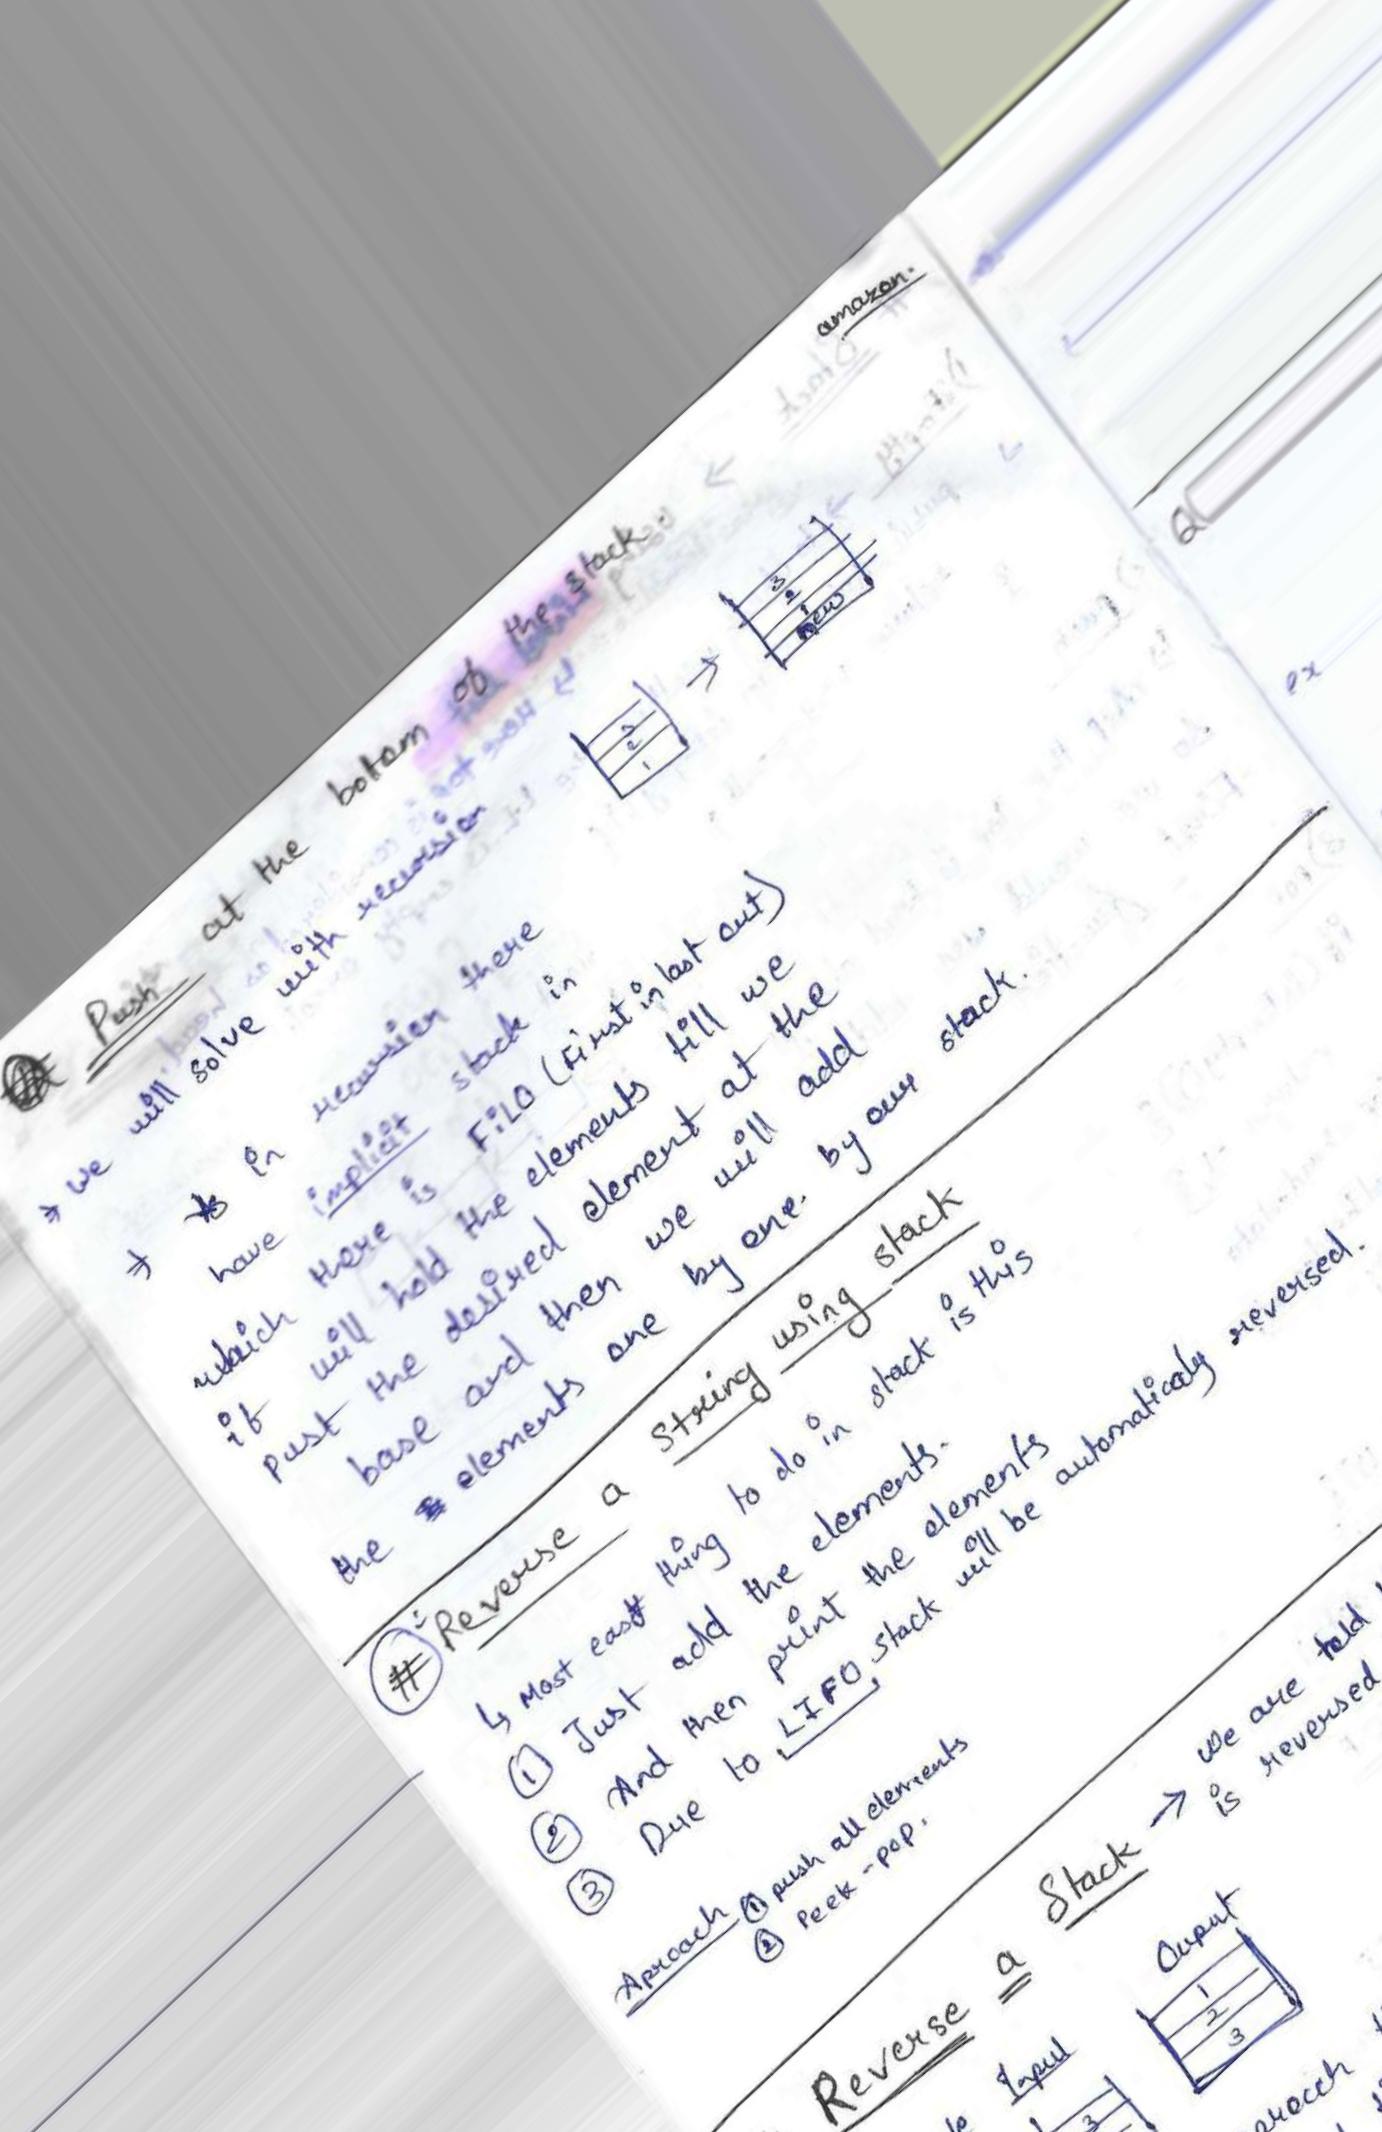 amazon.
Push at the botom of the stack
→ we will solve with recursion
3
2
1
→
3
2
1
new
→ in recursion there
have implicit stack in
which there is FILO (First in last out)
it will hold the elements till we
pust the desired element at the
base and then we will add
the elements one by one. by our stack.
# Reverse a String using stack
↳ Most east thing to do in stack is this
① Just add the elements.
② And then print the elements
③ Due to LIFO stack will be automaticaly reversed.
Aproach ① push all elements
② Peek - pop.
Reverse a Stack → we are told
is reversed
Input
3
Ouput
1
2
3
Q
ex